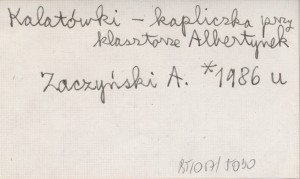 Kalatówki - kapliczka przy
klasztorze Albertynek
Zaczyński A. *1986 u